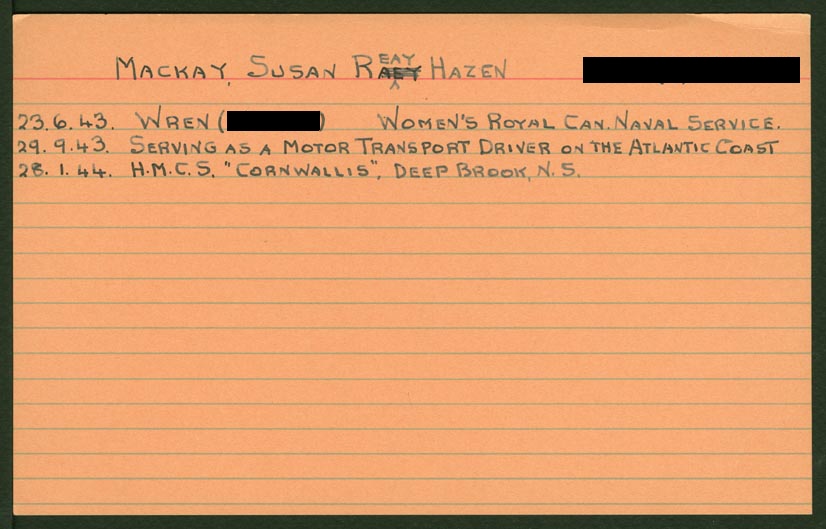 MACKAY, SUSAN REAY HAZEN
23.6.43. WREN ( ) WOMEN'S ROYAL CAN. NAVAL SERVICE.
29.9.43. SERVING AS A MOTOR TRANSPORT DRIVER ON THE ATLANTIC COAST
28.1.44. H.M.C.S. "CORNWALLIS", DEEP BROOK, N.S.